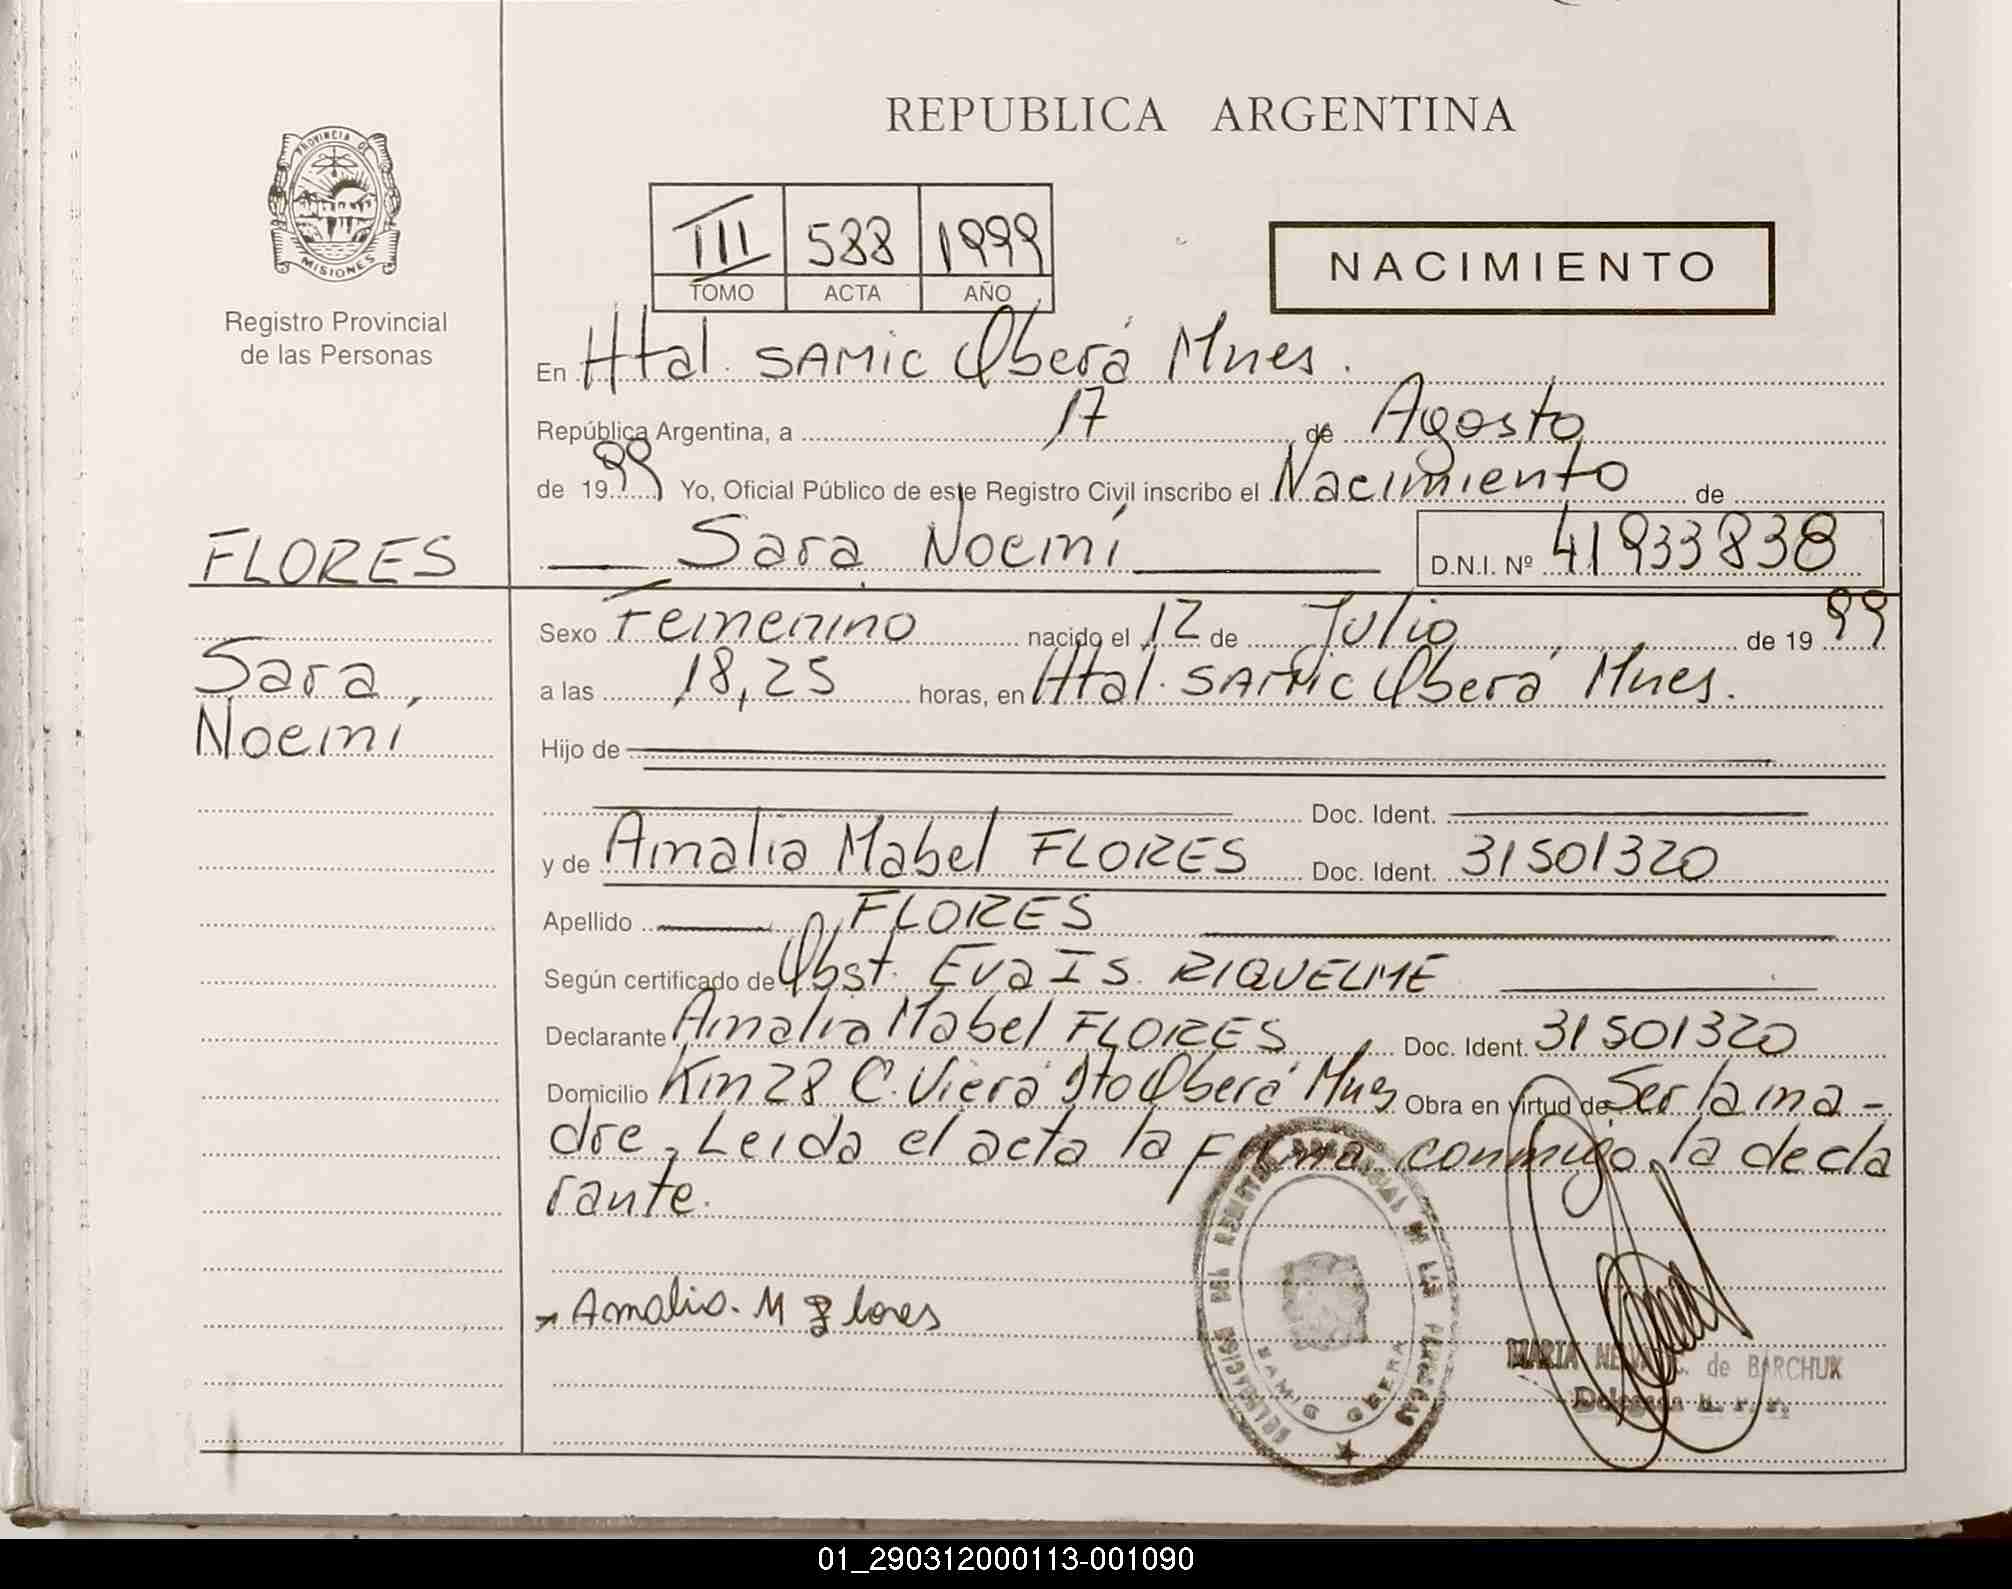 REPUBLICA ARGENTINA
PROVINCIA DE
MISIONES
Registro Provincial
de las Personas
III 588 1999
TOMO ACTA AÑO
NACIMIENTO
En Htal. SAMIC Oberá Mnes.
República Argentina, a 17 de Agosto
de 1999 Yo, Oficial Público de este Registro Civil inscribo el Nacimiento de
FLORES
Sara Noemí D.N.I. Nº 41933838
Sara
Noemí
Sexo Femenino nacido el 12 de Julio de 1999
a las 18,25 horas, en Htal. SAMIC Oberá Mnes.
Hijo de
Doc. Ident.
y de Amalia Mabel FLORES Doc. Ident. 31501320
Apellido FLORES
Según certificado de Obst. Eva Is. RIQUELME
Declarante Amalia Mabel FLORES Doc. Ident. 31501320
Domicilio Km 28 C. Viera Dto Oberá Mnes Obra en virtud de Ser la ma-
dre, Leida el acta la Firma conmigo la decla
rante.
Amalia. M Flores
DEL REGISTRO PROVINCIAL DE LAS PERSONAS
SAMIC OBERA
MARIA de BARCHUK
Delegada
01_290312000113-001090